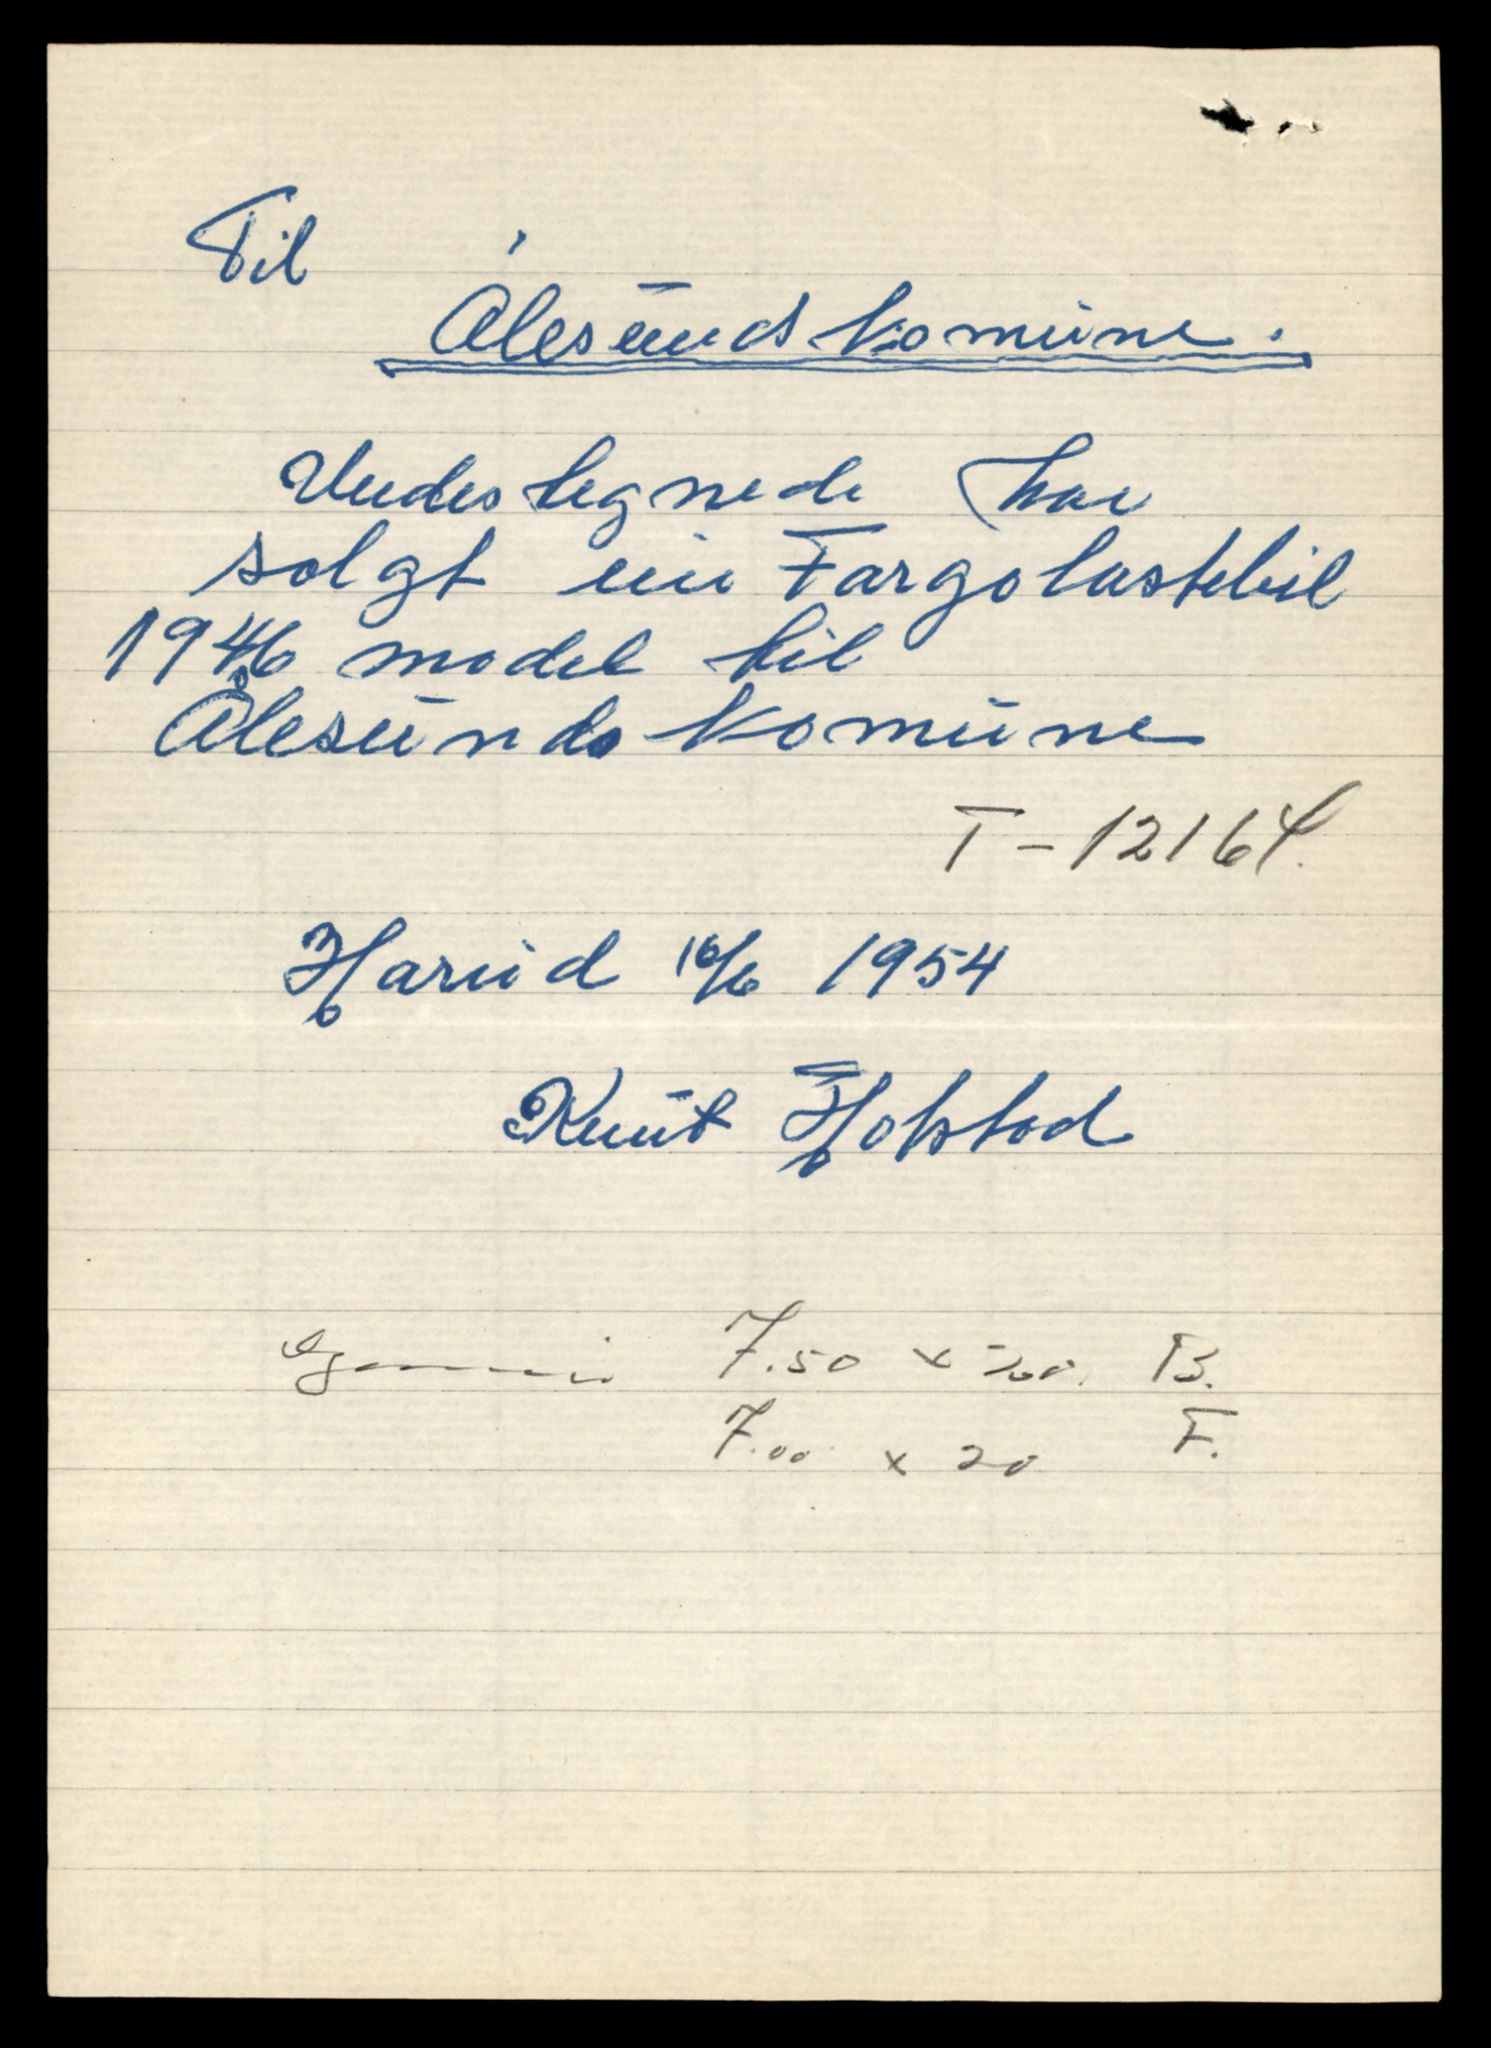 Til
Ålesund komune.
Undertegnede har
solgt ein Fargo lastebil
1946 model til
Ålesunds komune
T-12164.
Hareid 16/6 1954
Knut Holstad
Gummi 7.50 x 20. B.
7.00 x 20 F.